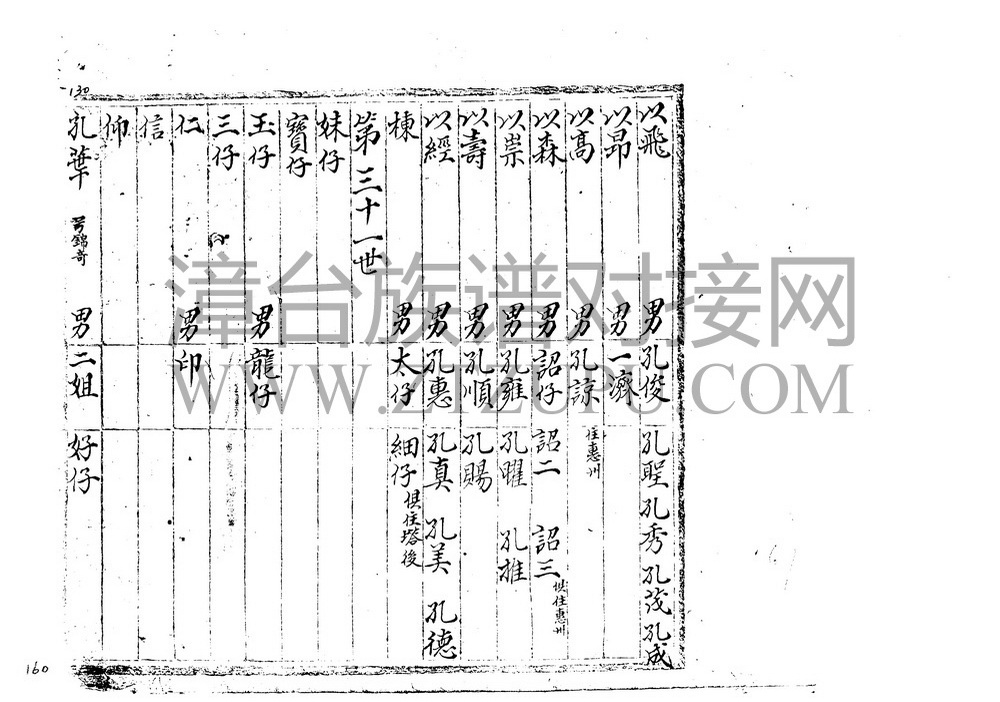 以飛 男 孔俊 孔聖 孔秀 孔茂 孔成
以昂 男 一濟
以高 男 孔諒 住惠州
以森 男 詔仔 詔二 詔三 俱住惠州
以崇 男 孔雍 孔曜 孔推
以壽 男 孔順 孔賜
以經 男 孔惠 孔真 孔美 孔德
棟 男 太仔 細仔 俱住塔後
第三十一世
妹仔
寶仔
玉仔 男 龍仔
三仔
仁 男 印
信
仰
孔華 号錦奇 男 二姐 好仔
130
160
漳台族谱对接网
WWW.ZTZUPU.COM